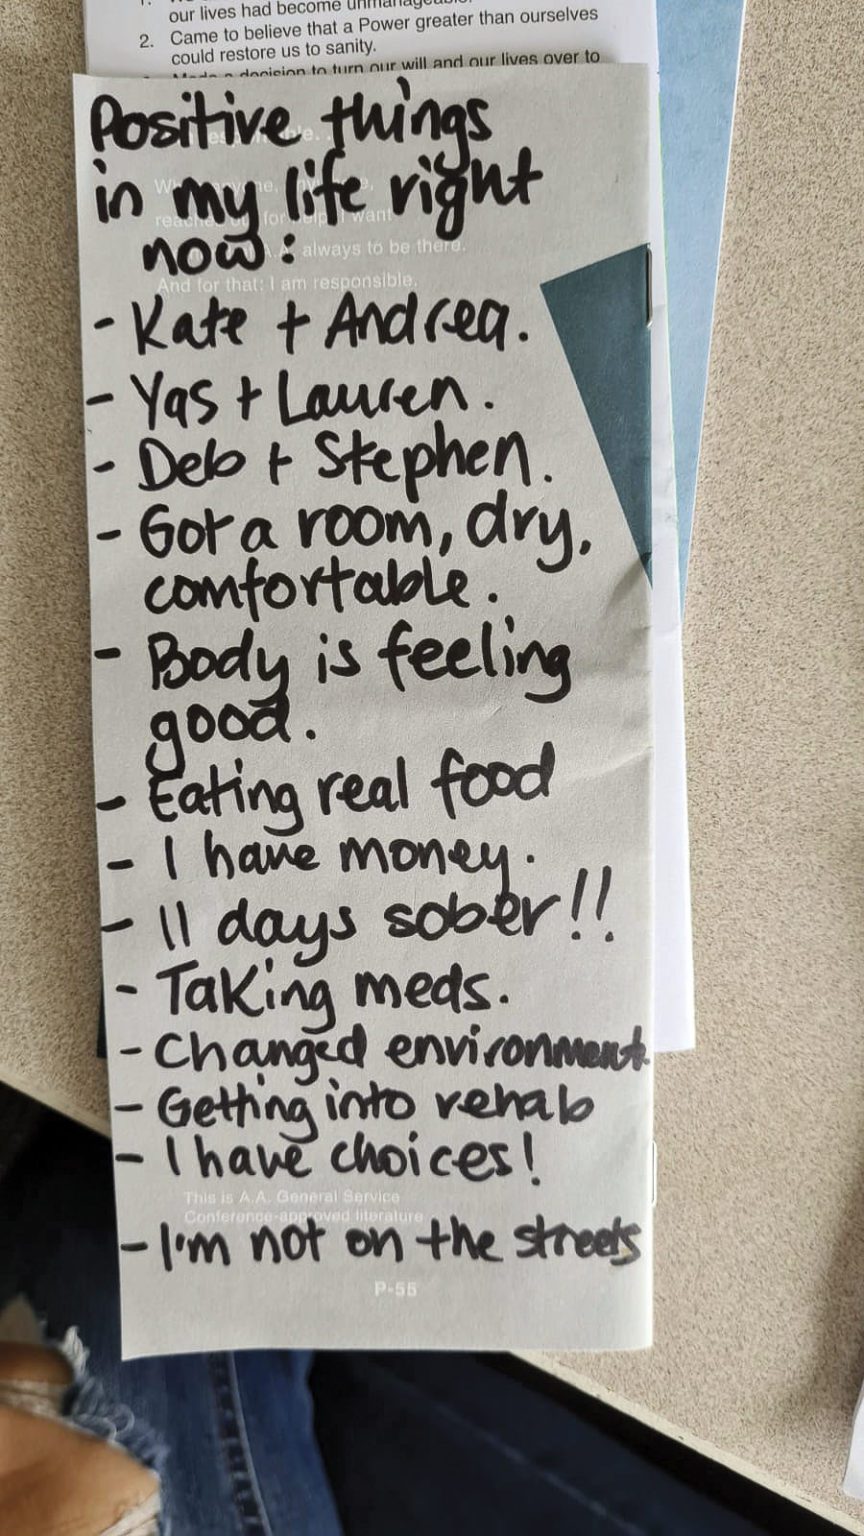 our lives had become unmanageable.
2. Came to believe that a Power greater than ourselves
could restore us to sanity.
decision to turn our will and our lives over to
Positive things
in my life right
now:
- Kate + Andrea.
- Yas + Lauren.
- Deb + Stephen.
- Got a room, dry,
comfortable.
- Body is feeling
good.
- Eating real food
- I have money.
- 11 days sober!!
- Taking meds.
- Changed environment.
- Getting into rehab
- I have choices!
- I'm not on the streets
always to be there.
And for that: I am responsible.
This is A.A. General Service
Conference-approved literature
P-55